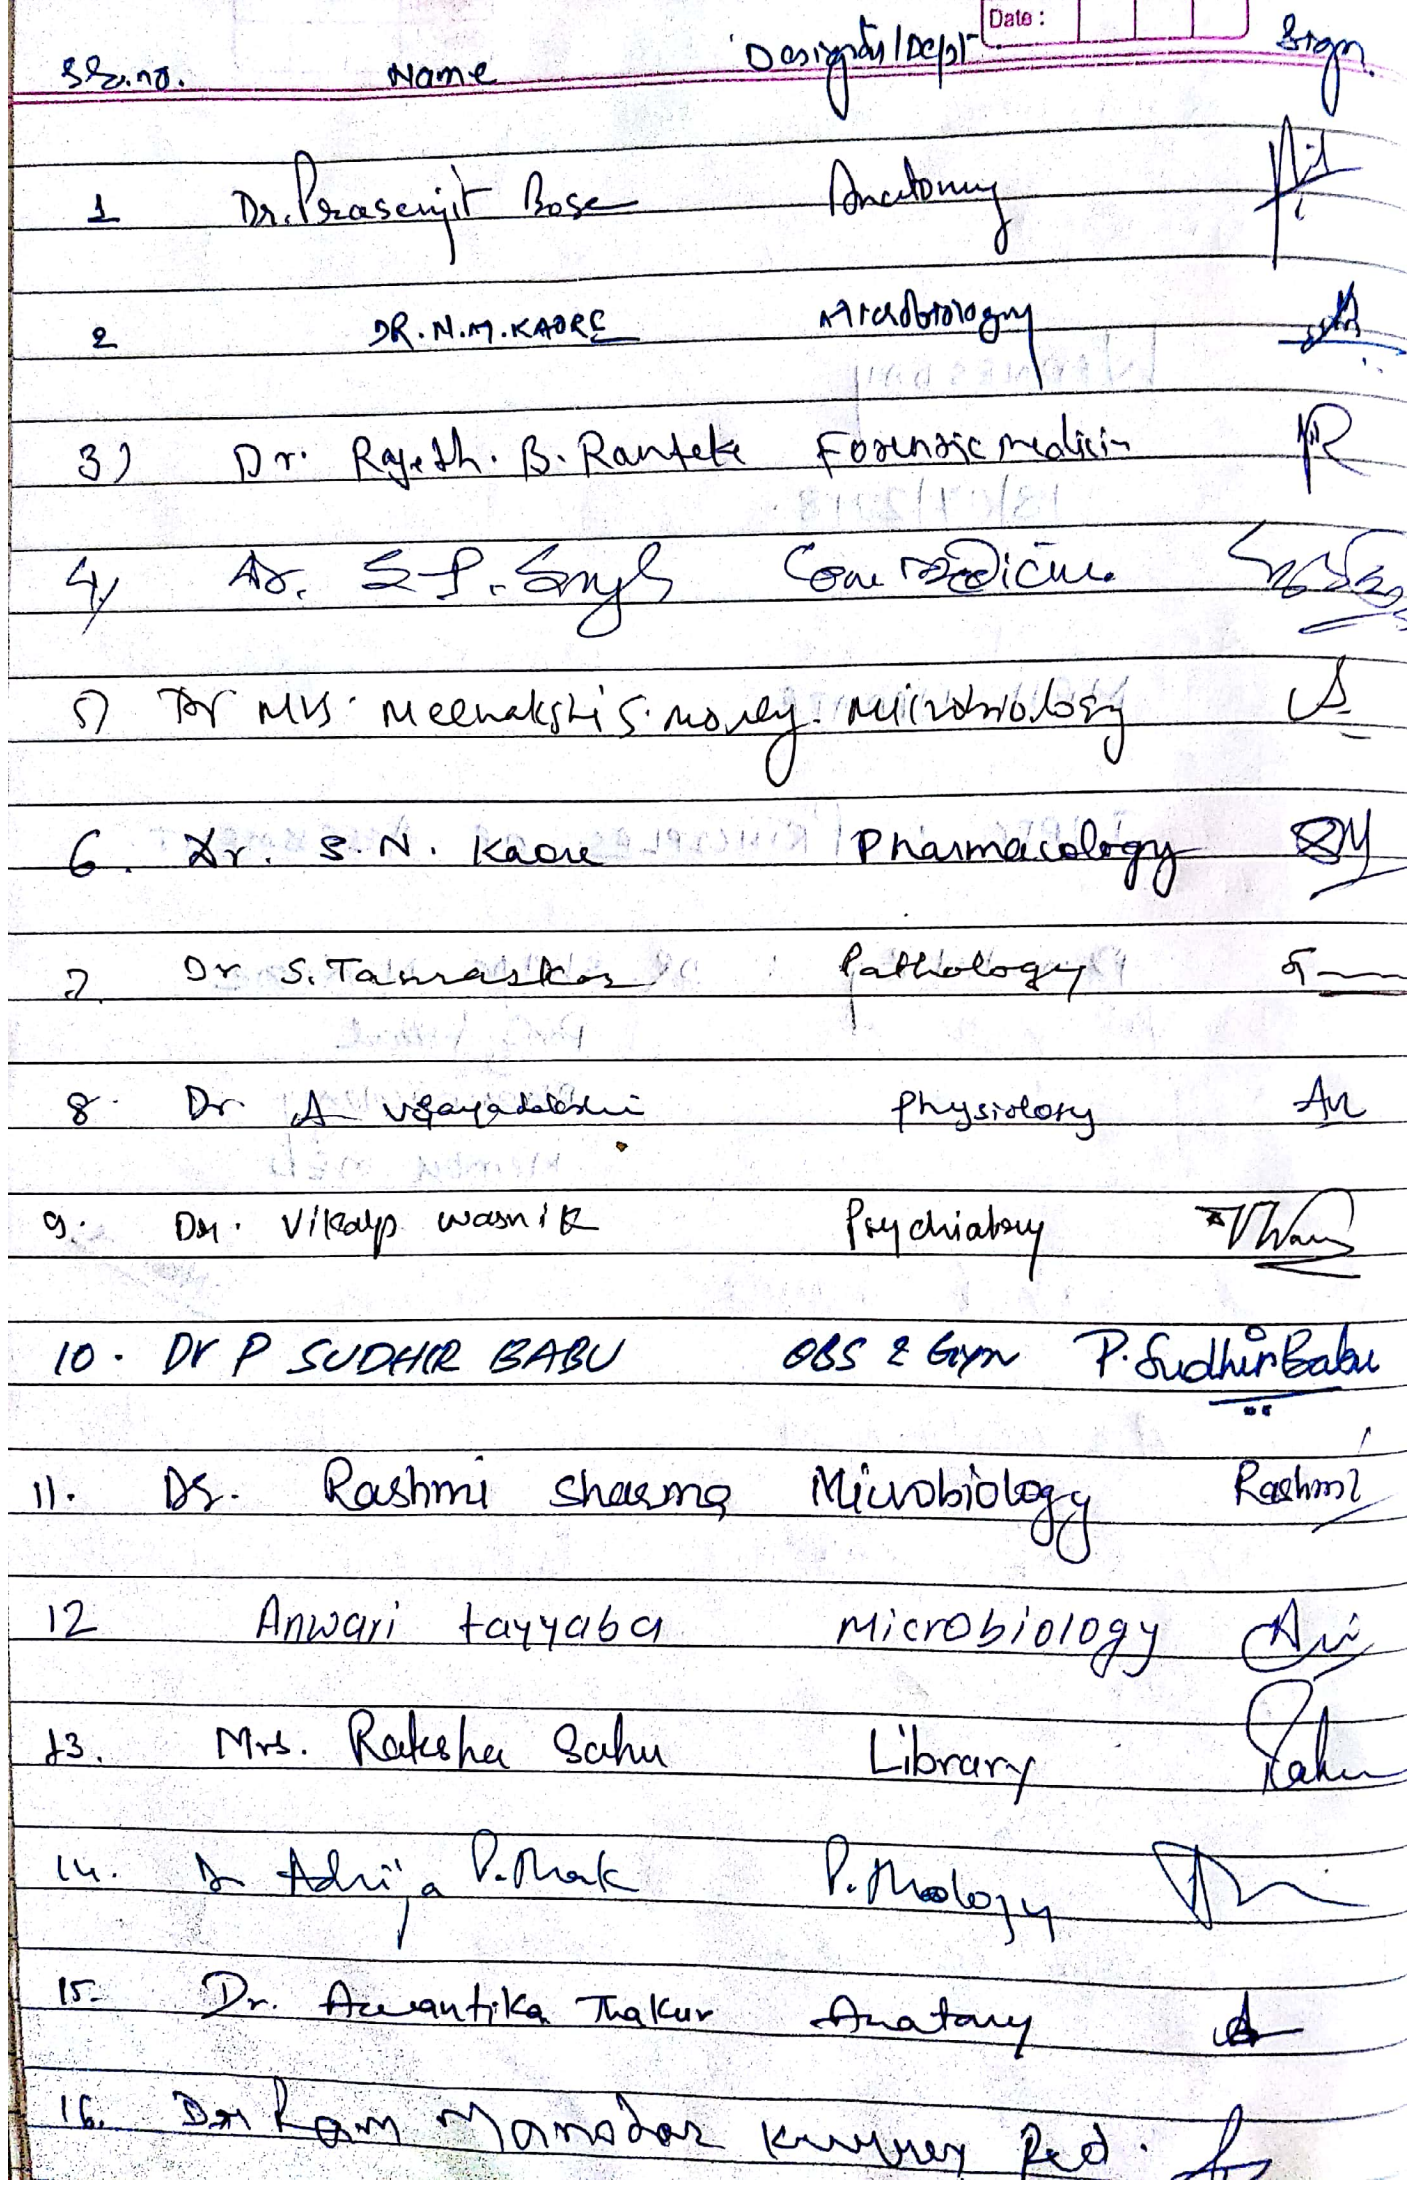 Date :
Sr.no. Name Designtn/Dept Sign.
1 Dr. Prasenjit Bose Anatomy
2 DR. N.M. KAORE Microbiology
3) Dr. Rajesh. B. Ramteke Forensic medicin
4) Dr. S.P. Singh Com Medicine
5) Dr Mrs. Meenakshi S. Morey. Microbiology
6. Dr. S. N. Kaore Pharmacology
7. Dr S. Tamraskar Pathology
8. Dr. A Physiology
9. Dr. Vikalp wasnik Psychiatry
10. Dr P SUDHIR BABU OBS & Gyn P. Sudhir Babu
11. Dr. Rashmi Sharma Microbiology Rashmi
12 Anwari tayyaba Microbiology
13. Mrs. Raksha Sahu Library
14. Dr P.thak P.thology
15. Dr. Awantika Thakur Anatomy
16. Dr Ram Manohar Ped.